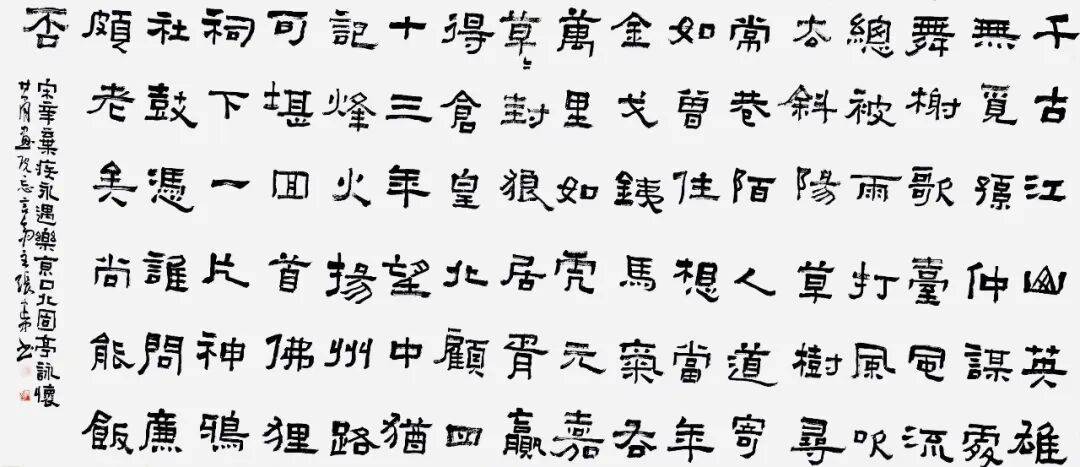 千古江山英雄
無覓孫仲謀處
舞榭歌臺風流
總被雨打風吹
去斜陽草樹尋
常巷陌人道寄
奴曾住想當年
金戈銕馬氣吞
萬里如虎元嘉
草々封狼居胥贏
得倉皇北顧四
十三年望中猶
記烽火揚州路
可堪回首佛狸
祠下一片神鴉
社鼓憑誰問廉
頗老矣尚能飯
否
宋辛棄疾永遇樂京口北固亭詠懷